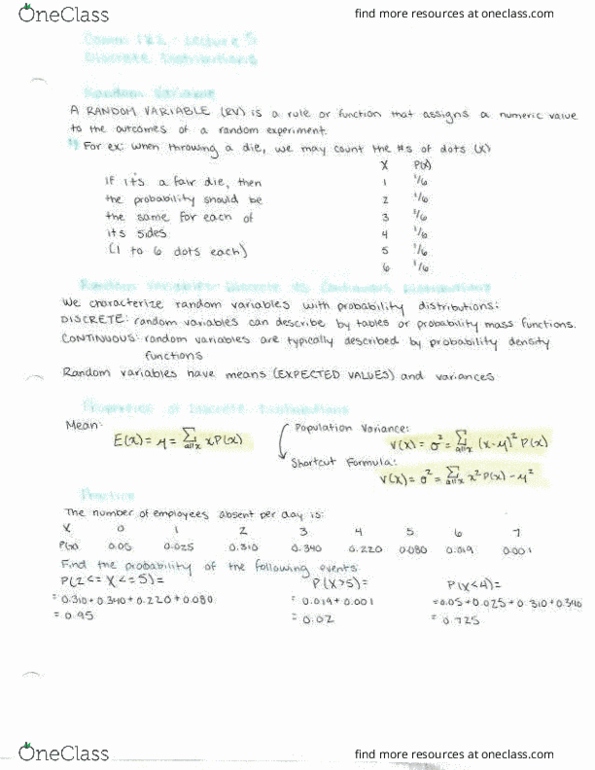 OneClass
find more resources at oneclass.com
Comm 162 - Lecture 5:
Discrete Distributions
Random Variable
A RANDOM VARIABLE (RV) is a rule or function that assigns a numeric value
to the outcomes of a random experiment
For ex: when throwing a die, we may count the #s of dots (x)
X P(x)
If it's a fair die, then
the probability should be
the same for each of
its sides.
(1 to 6 dots each)
1 1/6
2 1/6
3 1/6
4 1/6
5 1/6
6 1/6
Random Variables: Discrete vs Continuous Distributions
We characterize random variables with probability distributions:
DISCRETE: random variables can describe by tables or probability mass functions.
CONTINUOUS: random variables are typically described by probability density
functions
Random variables have means (EXPECTED VALUES) and variances
Properties of Discrete Distributions
Mean:
E(x) = μ = Σ all x xP(x)
Population Variance:
V(x) = σ² = Σ all x (x-μ)² P(x)
Shortcut Formula:
V(x) = σ² = Σ all x x² P(x) - μ²
Practice
The number of employees absent per day is:
X 0 1 2 3 4 5 6 7
P(x) 0.05 0.025 0.310 0.340 0.220 0.080 0.019 0.001
Find the probability of the following events:
P(2 <= X <= 5) =
= 0.310 + 0.340 + 0.220 + 0.080
= 0.95
P(X>5) =
= 0.019 + 0.001
= 0.02
P(X<4) =
= 0.05 + 0.025 + 0.310 + 0.340
= 0.725
OneClass
find more resources at oneclass.com